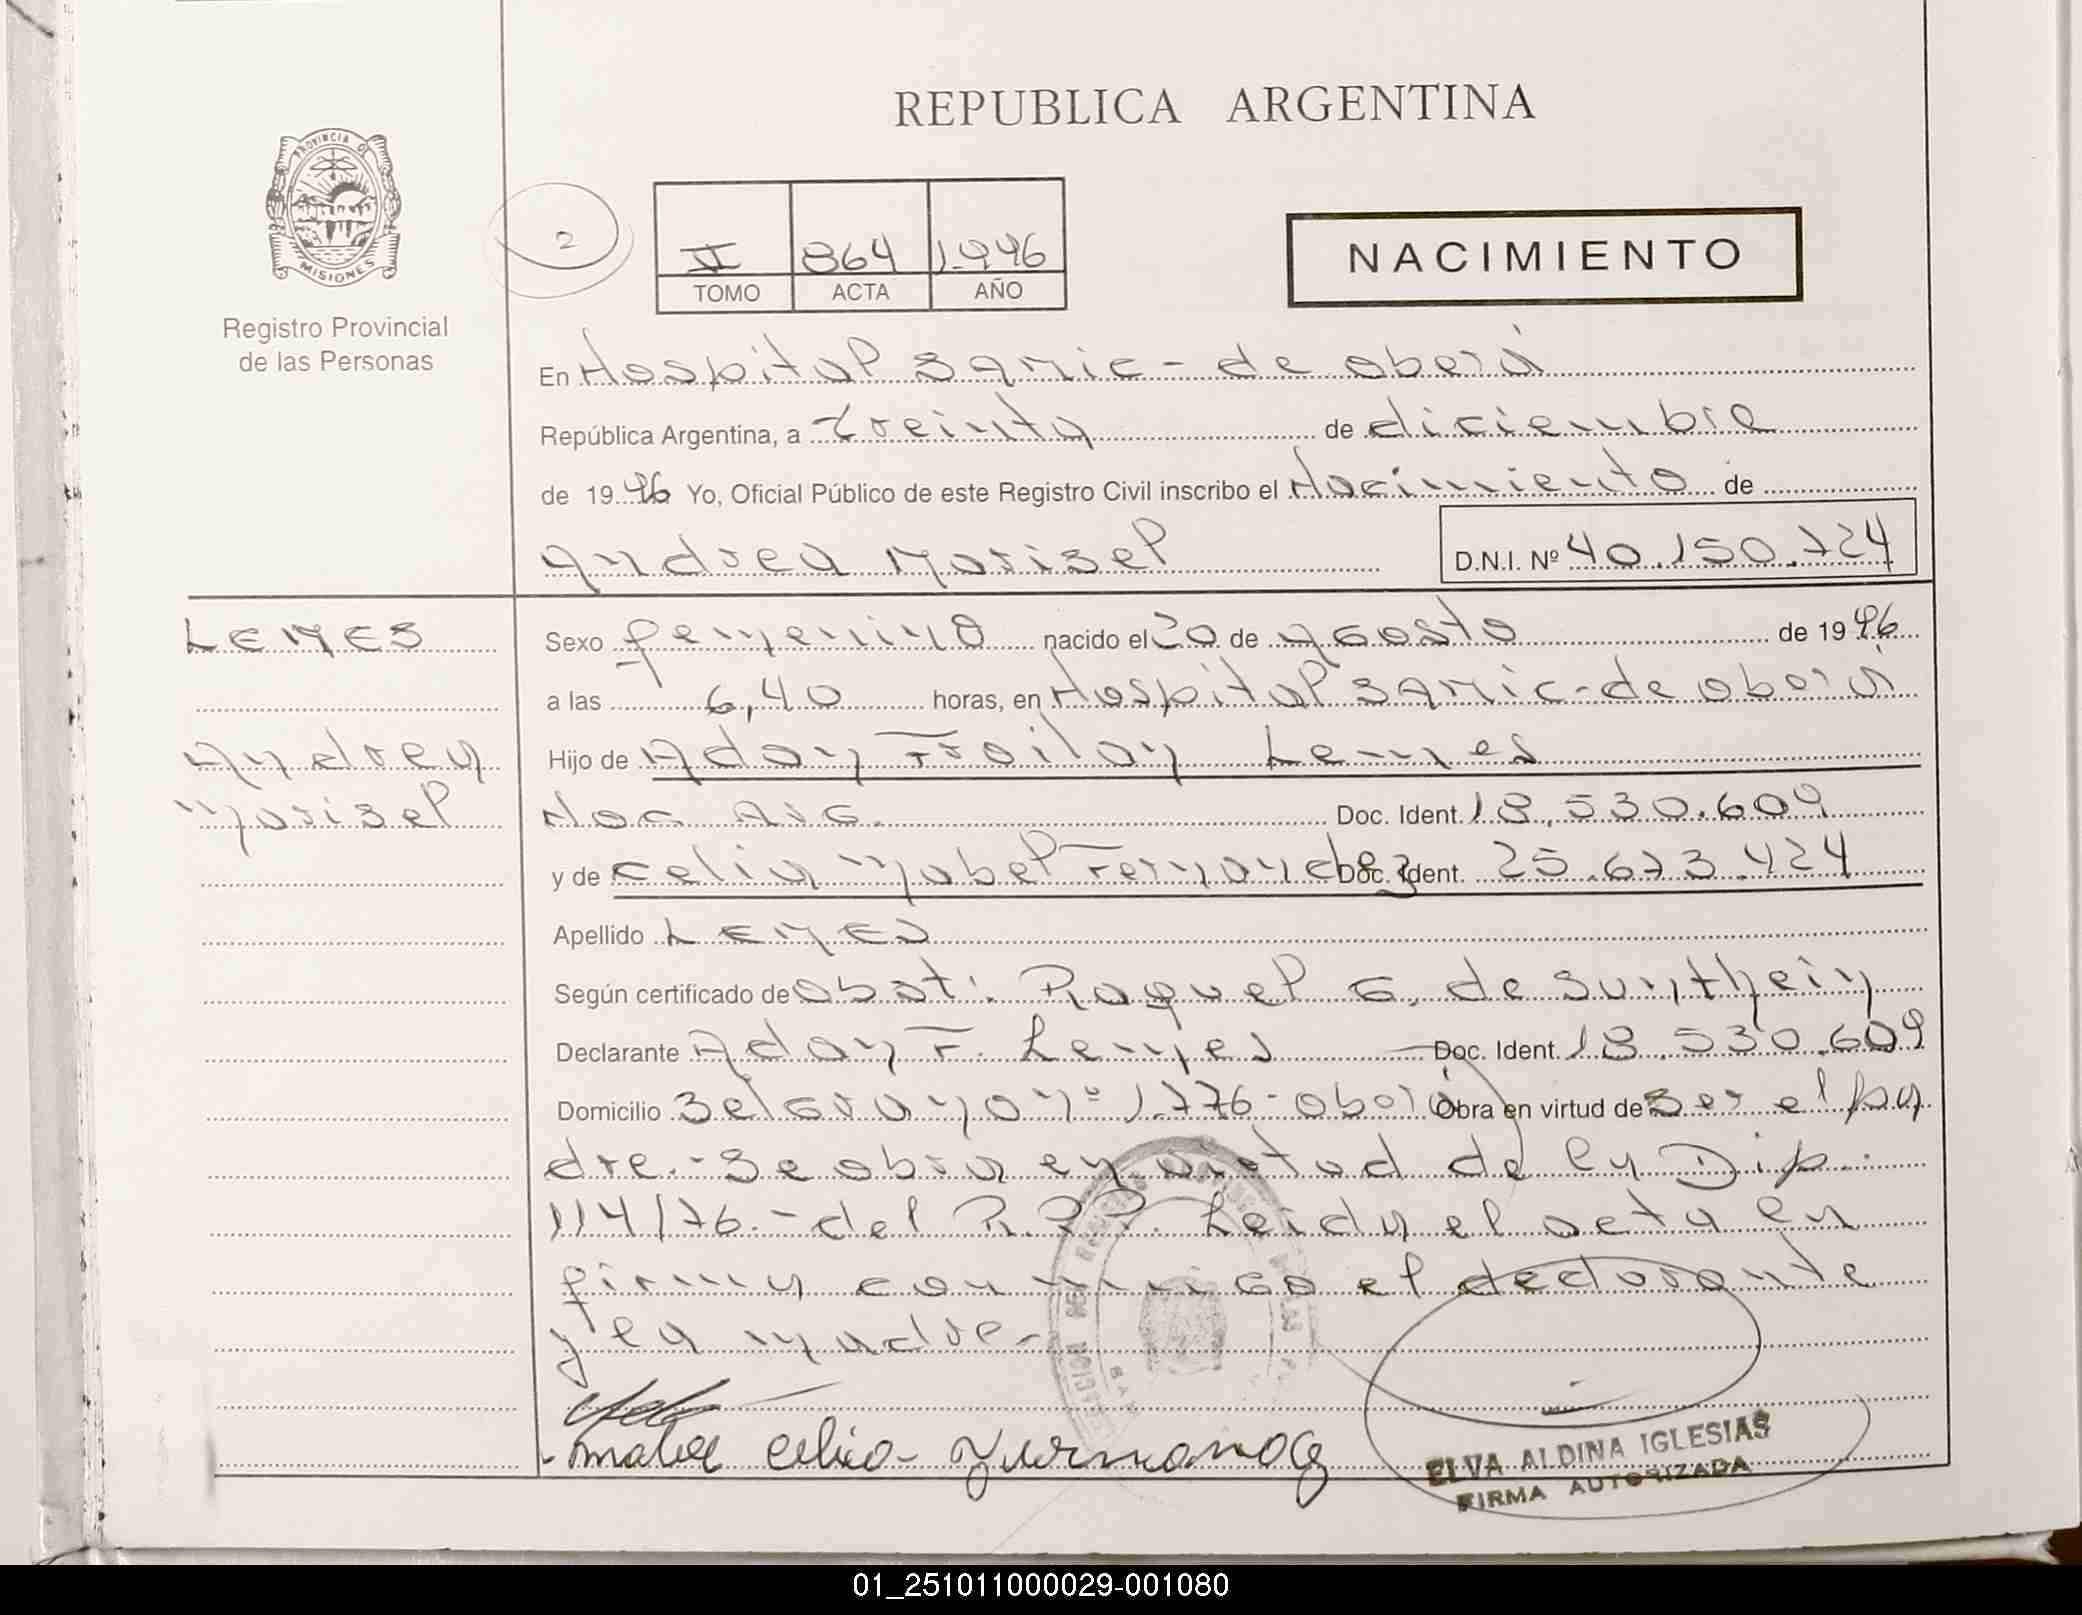 REPUBLICA ARGENTINA
PROVINCIA DE
MISIONES
Registro Provincial
de las Personas
2
II 864 1.996
TOMO ACTA AÑO
NACIMIENTO
En Hospital Samic - de oberá
República Argentina, a treinta de diciembre
de 19 96 Yo, Oficial Público de este Registro Civil inscribo el Nacimiento de
Andrea Marisel D.N.I. Nº 40.150.724
LEMES
Andrea
Marisel
Sexo femenino nacido el 20 de agosto de 19 96
a las 6,40 horas, en Hospital Samic-de oberá
Hijo de Adan Froilan Lemes
Nac Arg. Doc. Ident. 18.530.609
y de Celia Mabel Fernandez Doc. Ident. 25.673.424
Apellido LEMES
Según certificado de obst: Raquel G. de Sunthein
Declarante Adan F. Lemes Doc. Ident. 18.530.609
Domicilio Belgrano nº 1.776 - oberá Obra en virtud de ser el pa
dre.- Se obra en virtud de la Dip.
114/76.- del R.P.P. Leida el acta la
firma conmigo el declarante
y la madre-
mabel celia - Fernandez
ELVA ALDINA IGLESIAS
FIRMA AUTORIZADA
01_251011000029-001080